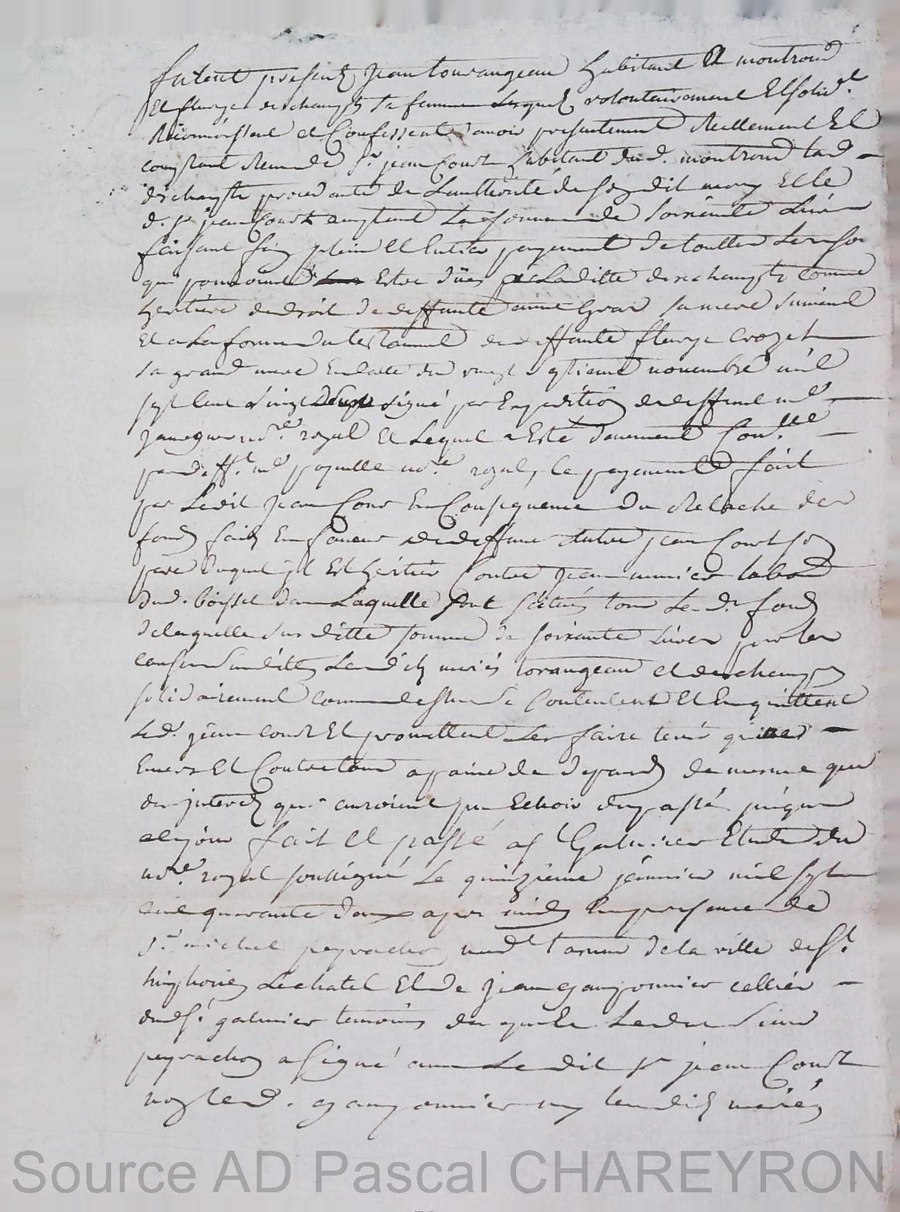 furent presents jean tourangeau habitant a montrond
et fleurye deschamps sa femme lesquels volontairement et solid.t
reconnoissent et confessent avoir presentement reellement et
comptant de s.r jean Court habitant dud. montrond lad.
deschamps procedante de l'authorité de sondit mary elle
d. s.r jean Court comptant la somme de soixante livres
faisant fin plein et entier payement de touttes les
qui pourroient estre dües a laditte deschamps comme
heritiere de droit de deffunte anne gras sa mere
et a la forme du testament de deffunte fleurye crozet
sa grand mere en datte du vingt novembre mil
sept cent vingt signé par expedition de deffunt m.e
no.re royal et lequel a esté duement con.llé
par deff.t m.e no.re royal, le payement fait
par ledit jean Court en consequence du relache des
fonds fait en faveur de deffunt autre jean Court son
pere duquel il est heritier contre jean
dud. boisset dans laquelle sont tous led. fonds
de laquelle susditte somme de soixante livres pour les
causes susdittes lesdits mariés torangeau et deschamps
solidairement comme dessus se contentent et en quittent
led. jean court et promettent les faire tenir quittes
envers et contre tous a paine de depends de mesme que
des interets qui auroient pu echoir du passé jusques
a ce jour fait et passé a s.t Galmier etude du
no.re royal soussigné le quinzieme janvier mil sept
cent quarante deux apres midy en presence de
s.r michel peyrachon de la ville de s.t
simphorien le chatel et de jean ganyonnier cellier
de s.t galmier temoins desquels led. sieur
peyrachon a signé avec ledit s.r jean Court
non led. ganyonnier ny lesdits mariés
Source AD Pascal CHAREYRON